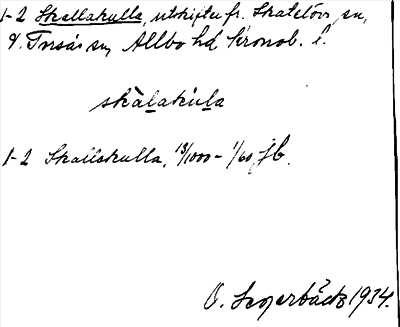 1-2 Skallakulla, utskiftn fr. Skatelövs sn,
t. Torsås sn, Allbo hd Kronob. l.
skàlakùla
1-2 Skallskulla, 13/1000 - 1/60, jb.
O. Segerbäck 1934.